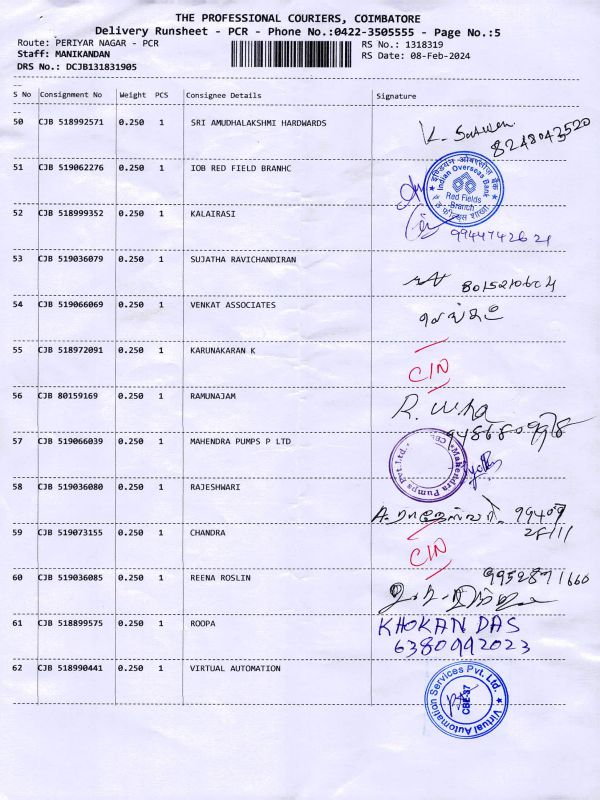 THE PROFESSIONAL COURIERS, COIMBATORE
Delivery Runsheet - PCR - Phone No.:0422-3505555 - Page No.:5
Route: PERIYAR NAGAR - PCR RS No.: 1318319
Staff: MANIKANDAN RS Date: 08-Feb-2024
DRS No.: DCJB131831905
S No Consignment No Weight PCS Consignee Details Signature
50 CJB 518992571 0.250 1 SRI AMUDHALAKSHMI HARDWARDS
8248043520
51 CJB 519062276 0.250 1 IOB RED FIELD BRANHC
इण्डियन ओवरसीज़ बैंक
Indian Overseas Bank
Red Fields
Branch
52 CJB 518999352 0.250 1 KALAIRASI
9944742621
53 CJB 519036079 0.250 1 SUJATHA RAVICHANDIRAN
8015210604
54 CJB 519066069 0.250 1 VENKAT ASSOCIATES
55 CJB 518972091 0.250 1 KARUNAKARAN K
CIN
56 CJB 80159169 0.250 1 RAMUNAJAM
R.
57 CJB 519066039 0.250 1 MAHENDRA PUMPS P LTD
Mahendra Pumps Pvt. Ltd.
58 CJB 519036080 0.250 1 RAJESHWARI
A. ராஜேஸ்வரி. 99409
59 CJB 519073155 0.250 1 CHANDRA
CIN
60 CJB 519036085 0.250 1 REENA ROSLIN
9952871660
61 CJB 518899575 0.250 1 ROOPA
KHOKAN DAS
6380992023
62 CJB 518990441 0.250 1 VIRTUAL AUTOMATION
Virtual Automation Services Pvt. Ltd.
CBE-37